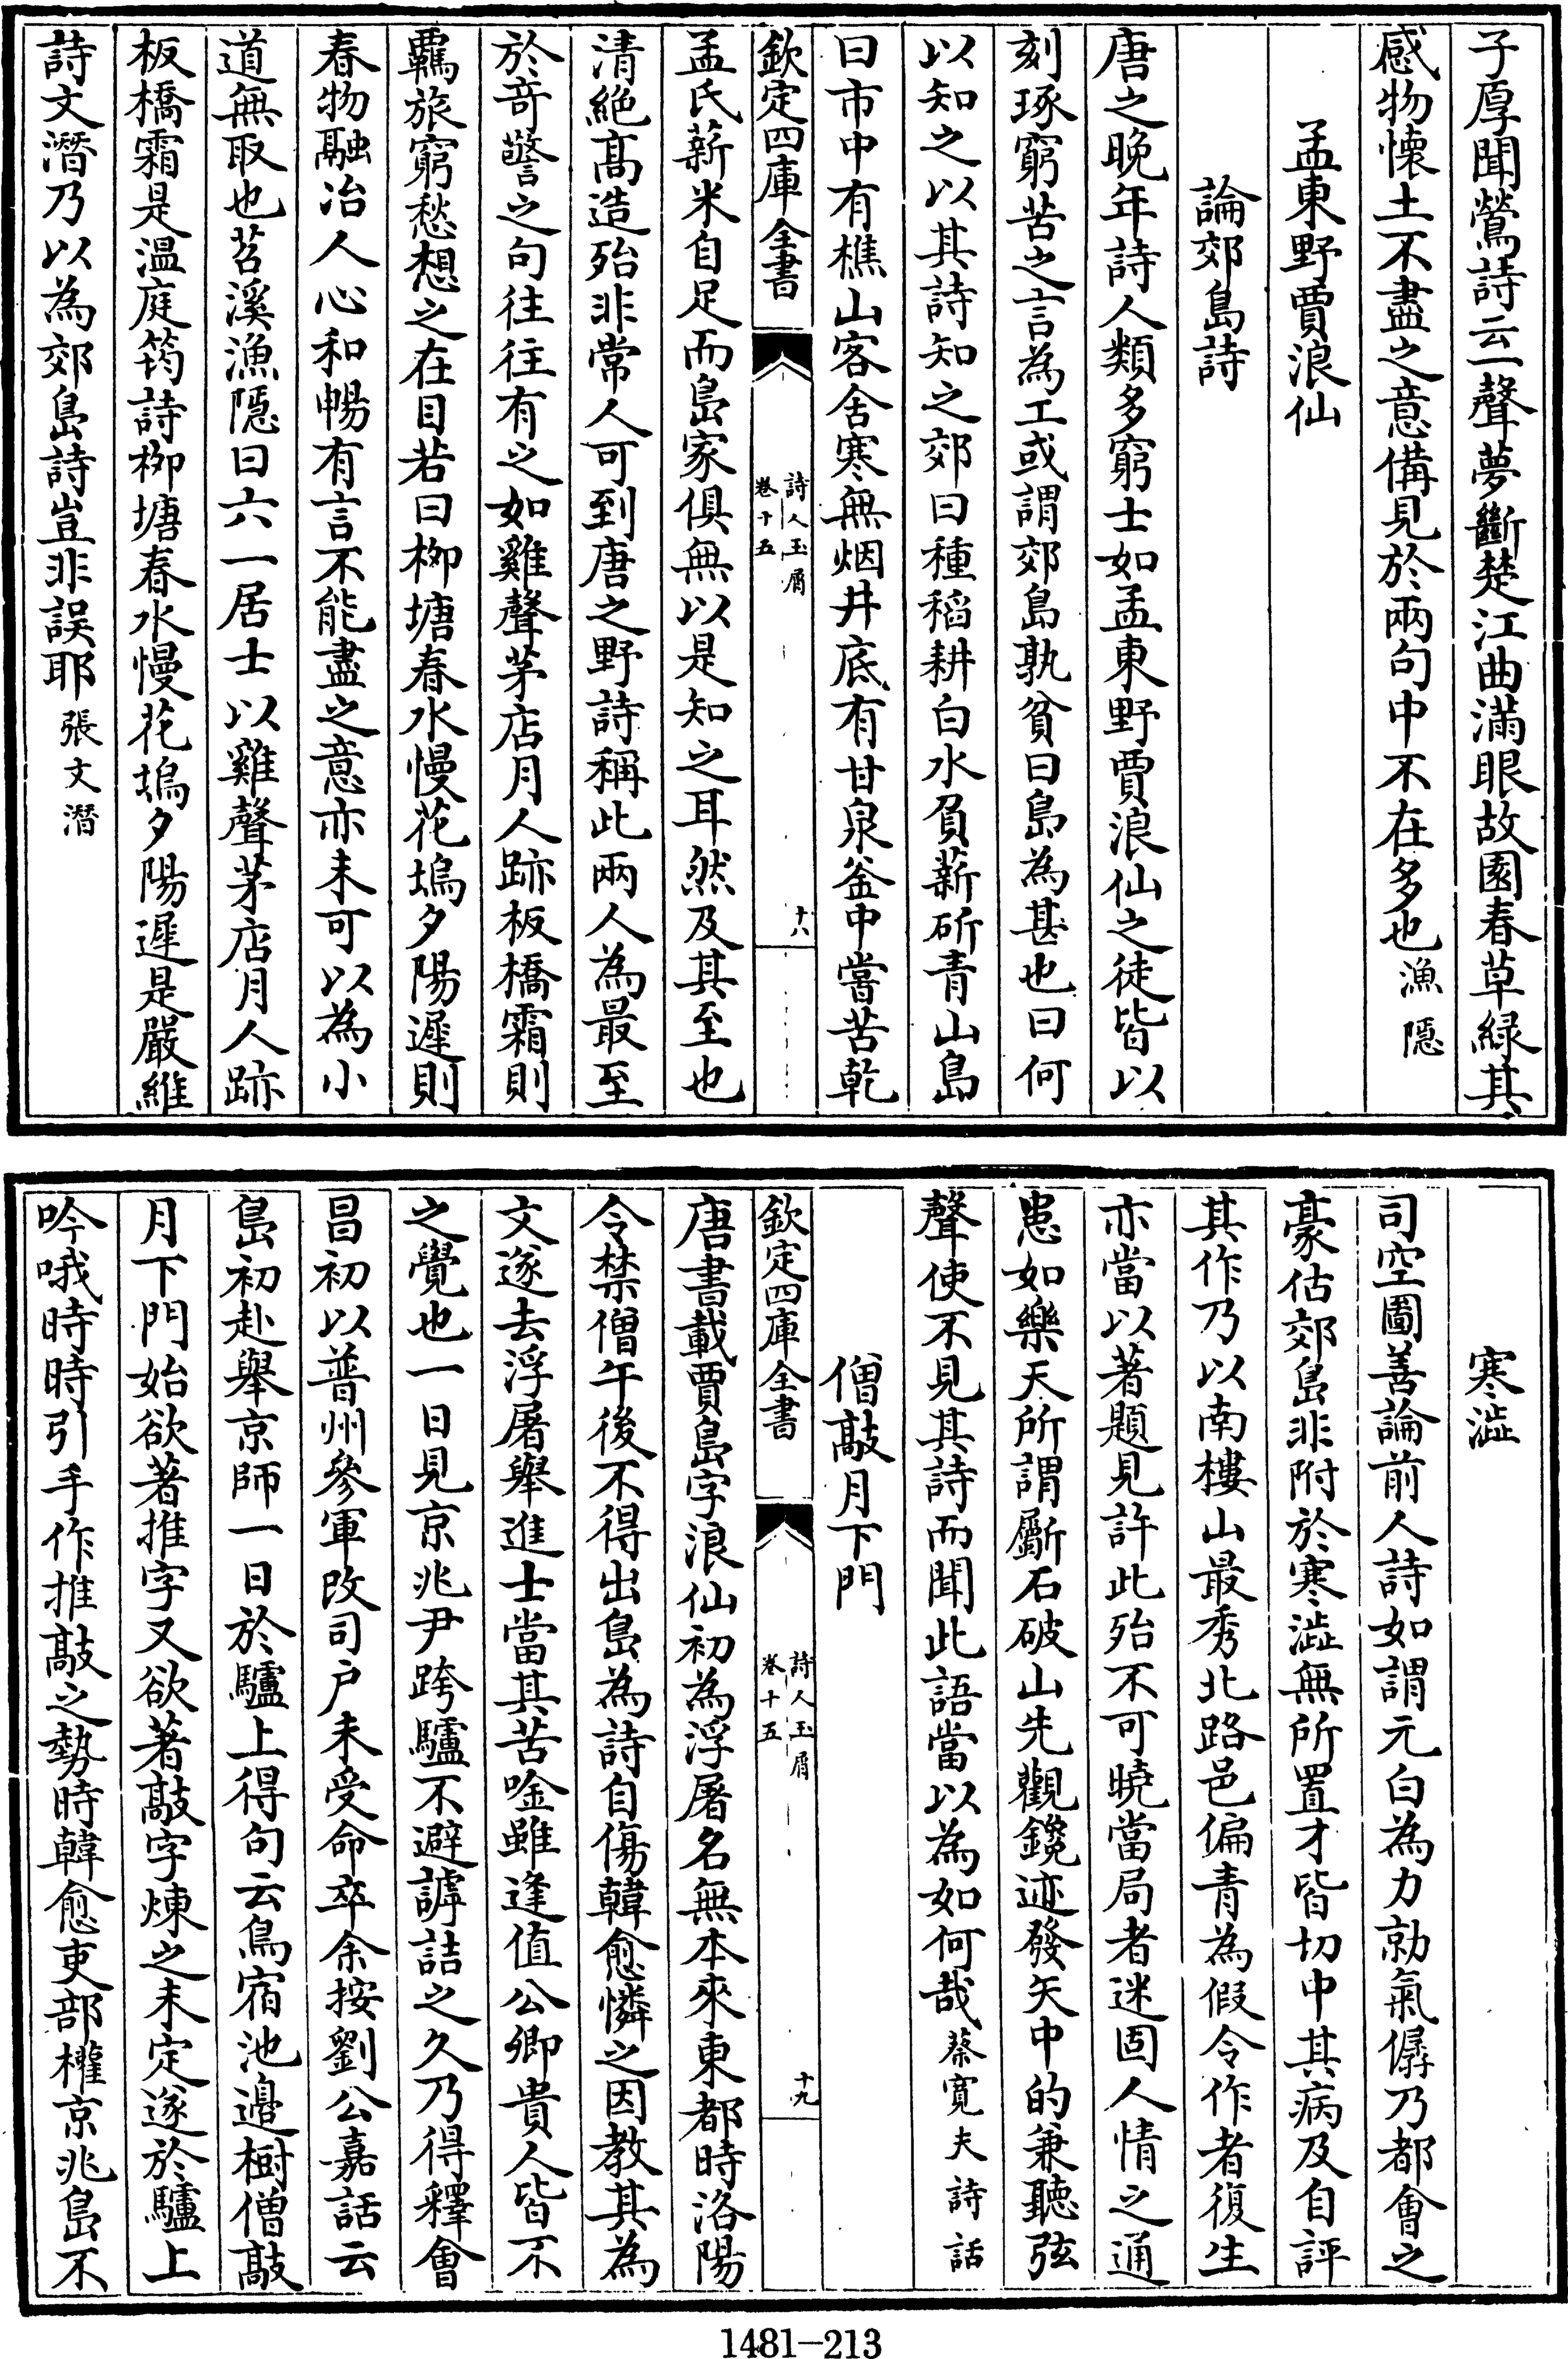 子厚聞鶯詩云一聲夢斷楚江曲滿眼故園春草緑其
感物懐土不盡之意備見於兩句中不在多也漁隱
孟東野賈浪仙
論郊島詩
唐之晚年詩人類多窮士如孟東野賈浪仙之徒皆以
刻琢窮苦之言為工或謂郊島孰貧曰島為甚也曰何
以知之以其詩知之郊曰種稻耕白水負薪斫青山島
曰市中有樵山客舍寒無烟井底有甘泉釜中嘗苦乾
欽定四庫全書
詩人玉屑
卷十五
十八
孟氏薪米自足而島家俱無以是知之耳然及其至也
清絶髙造殆非常人可到唐之野詩稱此兩人為最至
於竒警之句往往有之如雞聲茅店月人跡板橋霜則
羈旅窮愁想之在目若曰栁塘春水慢花塢夕陽遲則
春物融冶人心和暢有言不能盡之意亦未可以為小
道無取也苕溪漁隱曰六一居士以雞聲茅店月人跡
板橋霜是温庭筠詩栁塘春水慢花塢夕陽遲是嚴維
詩文潛乃以為郊島詩豈非誤耶張文潛
寒澁
司空圖善論前人詩如謂元白為力勍氣孱乃都會之
豪估郊島非附於寒澁無所置才皆切中其病及自評
其作乃以南樓山最秀北路邑偏青為假令作者復生
亦當以著題見許此殆不可曉當局者迷固人情之通
患如樂天所謂斸石破山先觀鑱迹發矢中的兼聽弦
聲使不見其詩而聞此語當以為如何哉蔡寛夫詩話
僧敲月下門
欽定四庫全書
詩人玉屑
卷十五
十九
唐書載賈島字浪仙初為浮屠名無本來東都時洛陽
令禁僧午後不得出島為詩自傷韓愈憐之因教其為
文遂去浮屠舉進士當其苦唫雖逢值公卿貴人皆不
之覺也一日見京兆尹跨驢不避謼詰之久乃得釋會
昌初以普州參軍改司户未受命卒余按劉公嘉話云
島初赴舉京師一日於驢上得句云鳥宿池邉樹僧敲
月下門始欲著推字又欲著敲字煉之未定遂於驢上
吟哦時時引手作推敲之勢時韓愈吏部權京兆島不
1481-213